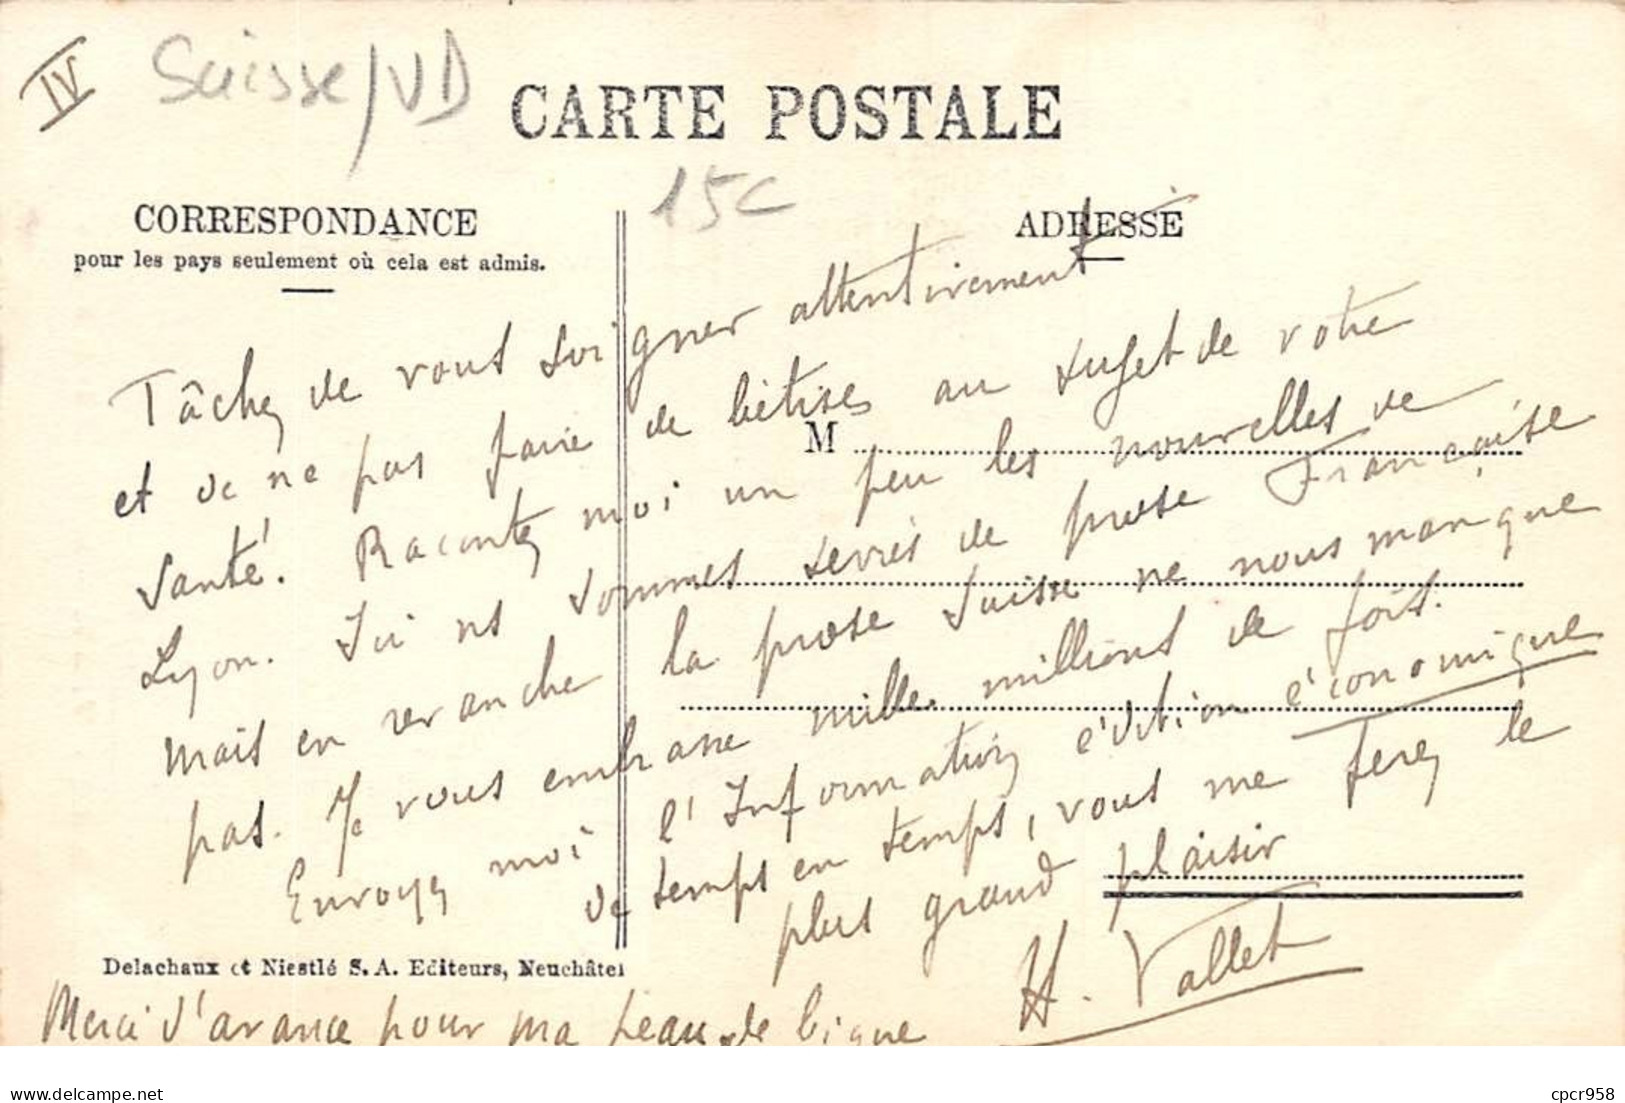 IV
Suisse/VD
CARTE POSTALE
15c
CORRESPONDANCE
ADRESSE
pour les pays seulement où cela est admis.
Tâchez de vous soigner attentivement
et de ne pas faire de bêtises au sujet de votre
santé. Racontez moi un peu les nouvelles de
Lyon. Ici ns sommes sevrés de prose Française
mais en revanche la prose Suisse ne nous manque
pas. Je vous embrasse mille millions de fois.
Envoyez moi l'Information édition économique
de temps en temps, vous me ferez le
plus grand plaisir
H. Vallet
M
Delachaux et Niestlé S.A. Editeurs, Neuchâtel
Merci d'avance pour ma peau de bique
www.delcampe.net
cpcr958